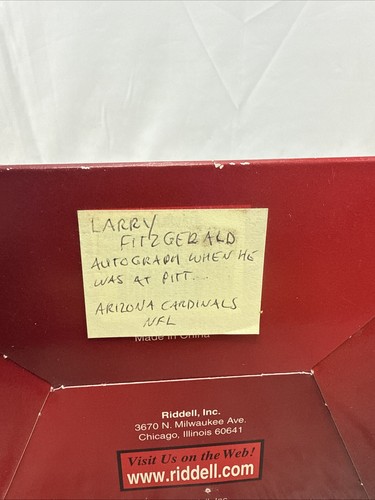 LARRY
FITZGERALD
AUTOGRAPH WHEN HE
WAS AT PITT...
ARIZONA CARDINALS
NFL
Made in China
Riddell, Inc.
3670 N. Milwaukee Ave.
Chicago, Illinois 60641
Visit Us on the Web!
www.riddell.com